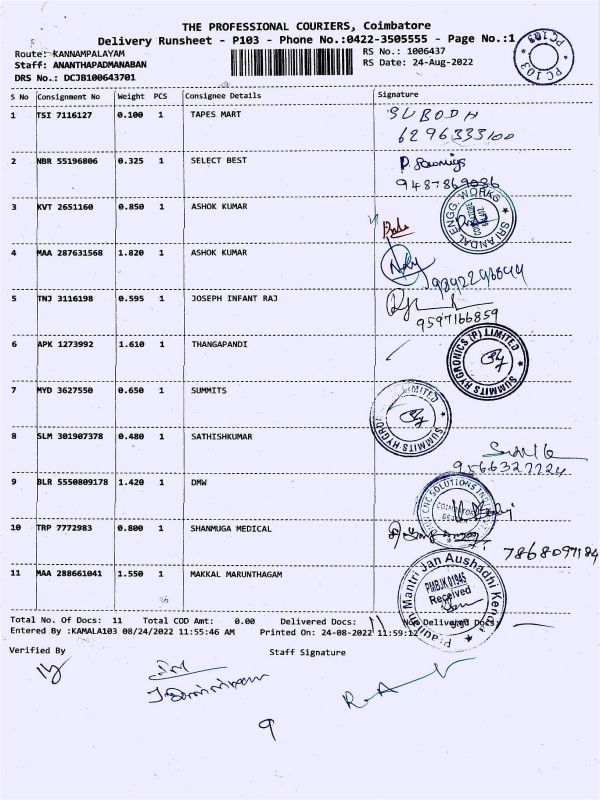 THE PROFESSIONAL COURIERS, Coimbatore
Delivery Runsheet - P103 - Phone No.:0422-3505555 - Page No.:1
Route: KANNAMPALAYAM
RS No.: 1006437
Staff: ANANTHAPADMANABAN
RS Date: 24-Aug-2022
DRS No.: DCJB100643701
PC 103
PC 103
S No Consignment No Weight PCS Consignee Details Signature
1 TSI 7116127 0.100 1 TAPES MART SUBODH
6296333100
2 NBR 55196806 0.325 1 SELECT BEST
9487869036
3 KVT 2651160 0.850 1 ASHOK KUMAR
SRI ANDAL ENGG. WORKS
4 MAA 287631568 1.820 1 ASHOK KUMAR
5 TNJ 3116198 0.595 1 JOSEPH INFANT RAJ
9597166859
6 APK 1273992 1.610 1 THANGAPANDI
SUMMITS HYGRONICS (P) LIMITED
7 MYD 3627550 0.650 1 SUMMITS
SUMMITS HYGRO LIMITED
8 SLM 301907378 0.480 1 SATHISHKUMAR
9566327224
9 BLR 5550809178 1.420 1 DMW
CNC SOLUTIONS
10 TRP 7772983 0.800 1 SHANMUGA MEDICAL
7868097184
11 MAA 288661041 1.550 1 MAKKAL MARUNTHAGAM
Pradhan Mantri Jan Aushadhi Kendra
PMBJK 01945
Received
Sign
Total No. Of Docs: 11 Total COD Amt: 0.00 Delivered Docs: 11 Non Delivered Docs: —
Entered By :KAMALA103 08/24/2022 11:55:46 AM Printed On: 24-08-2022 11:59:12
Verified By Staff Signature
9